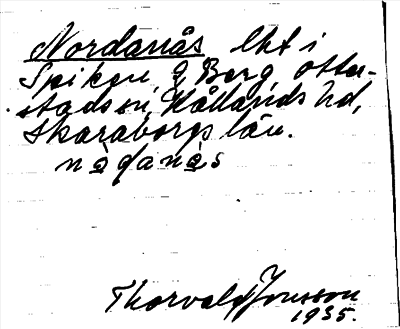 Nordanås lht i
Spiken, G Berg, Otter-
stads sn, Kållands hd,
Skaraborgs län.
Thorvald Jonsson
1935.